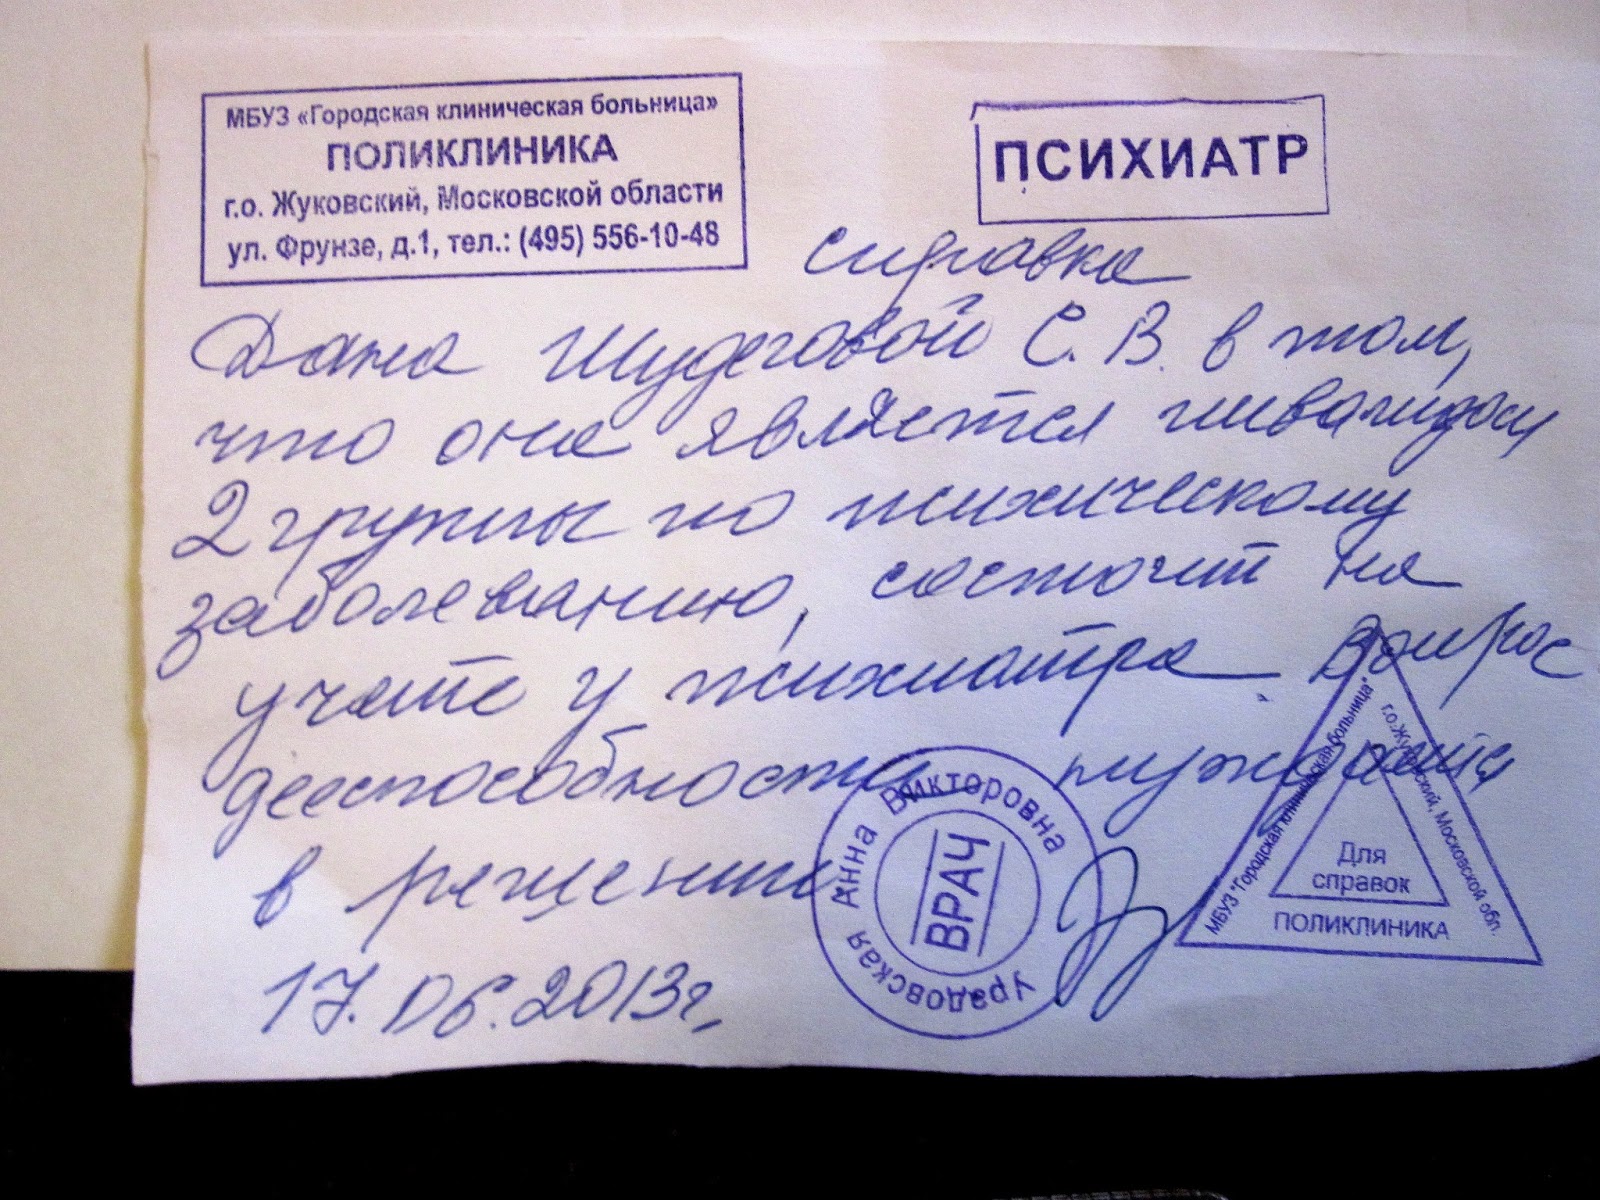 МБУЗ «Городская клиническая больница»
ПОЛИКЛИНИКА
г.о. Жуковский, Московской области
ул. Фрунзе, д.1, тел.: (495) 556-10-48
ПСИХИАТР
справка
Дана Шудеговой С. В. в том,
что она является инвалидом
2 группы по психическому
заболеванию, состоит на
учете у психиатра. Вопрос
дееспособности нуждается
в решении
17.06.2013г.
Урадовская Анна Викторовна
ВРАЧ
МБУЗ "Городская клиническая больница"
г.о. Жуковский, Московской обл.
Для
справок
ПОЛИКЛИНИКА